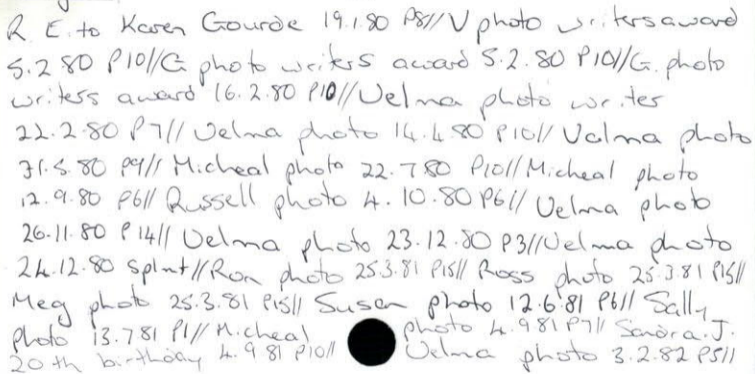 R. E. to Karen Gourde 19.1.80 P8// V photo writers award
5.2.80 P10// G photo writers award 5.2.80 P10// G. photo
writers award 16.2.80 P10// Velma photo writer
22.2.80 P7// Velma photo 14.4.80 P10// Valma photo
31.5.80 P9// Micheal photo 22.7.80 P10// Micheal photo
12.9.80 P6// Russell photo 4.10.80 P6// Velma photo
26.11.80 P14// Velma photo 23.12.80 P3// Velma photo
24.12.80 // Ron photo 25.3.81 P15// Ross photo 25.3.81 P15//
Meg photo 25.3.81 P15// Susan photo 12.6.81 P6// Sally
photo 13.7.81 P1// Micheal photo 4.9.81 P7// Sandra. J.
20th birthday 4.9.81 P10// Velma photo 3.2.82 P5//